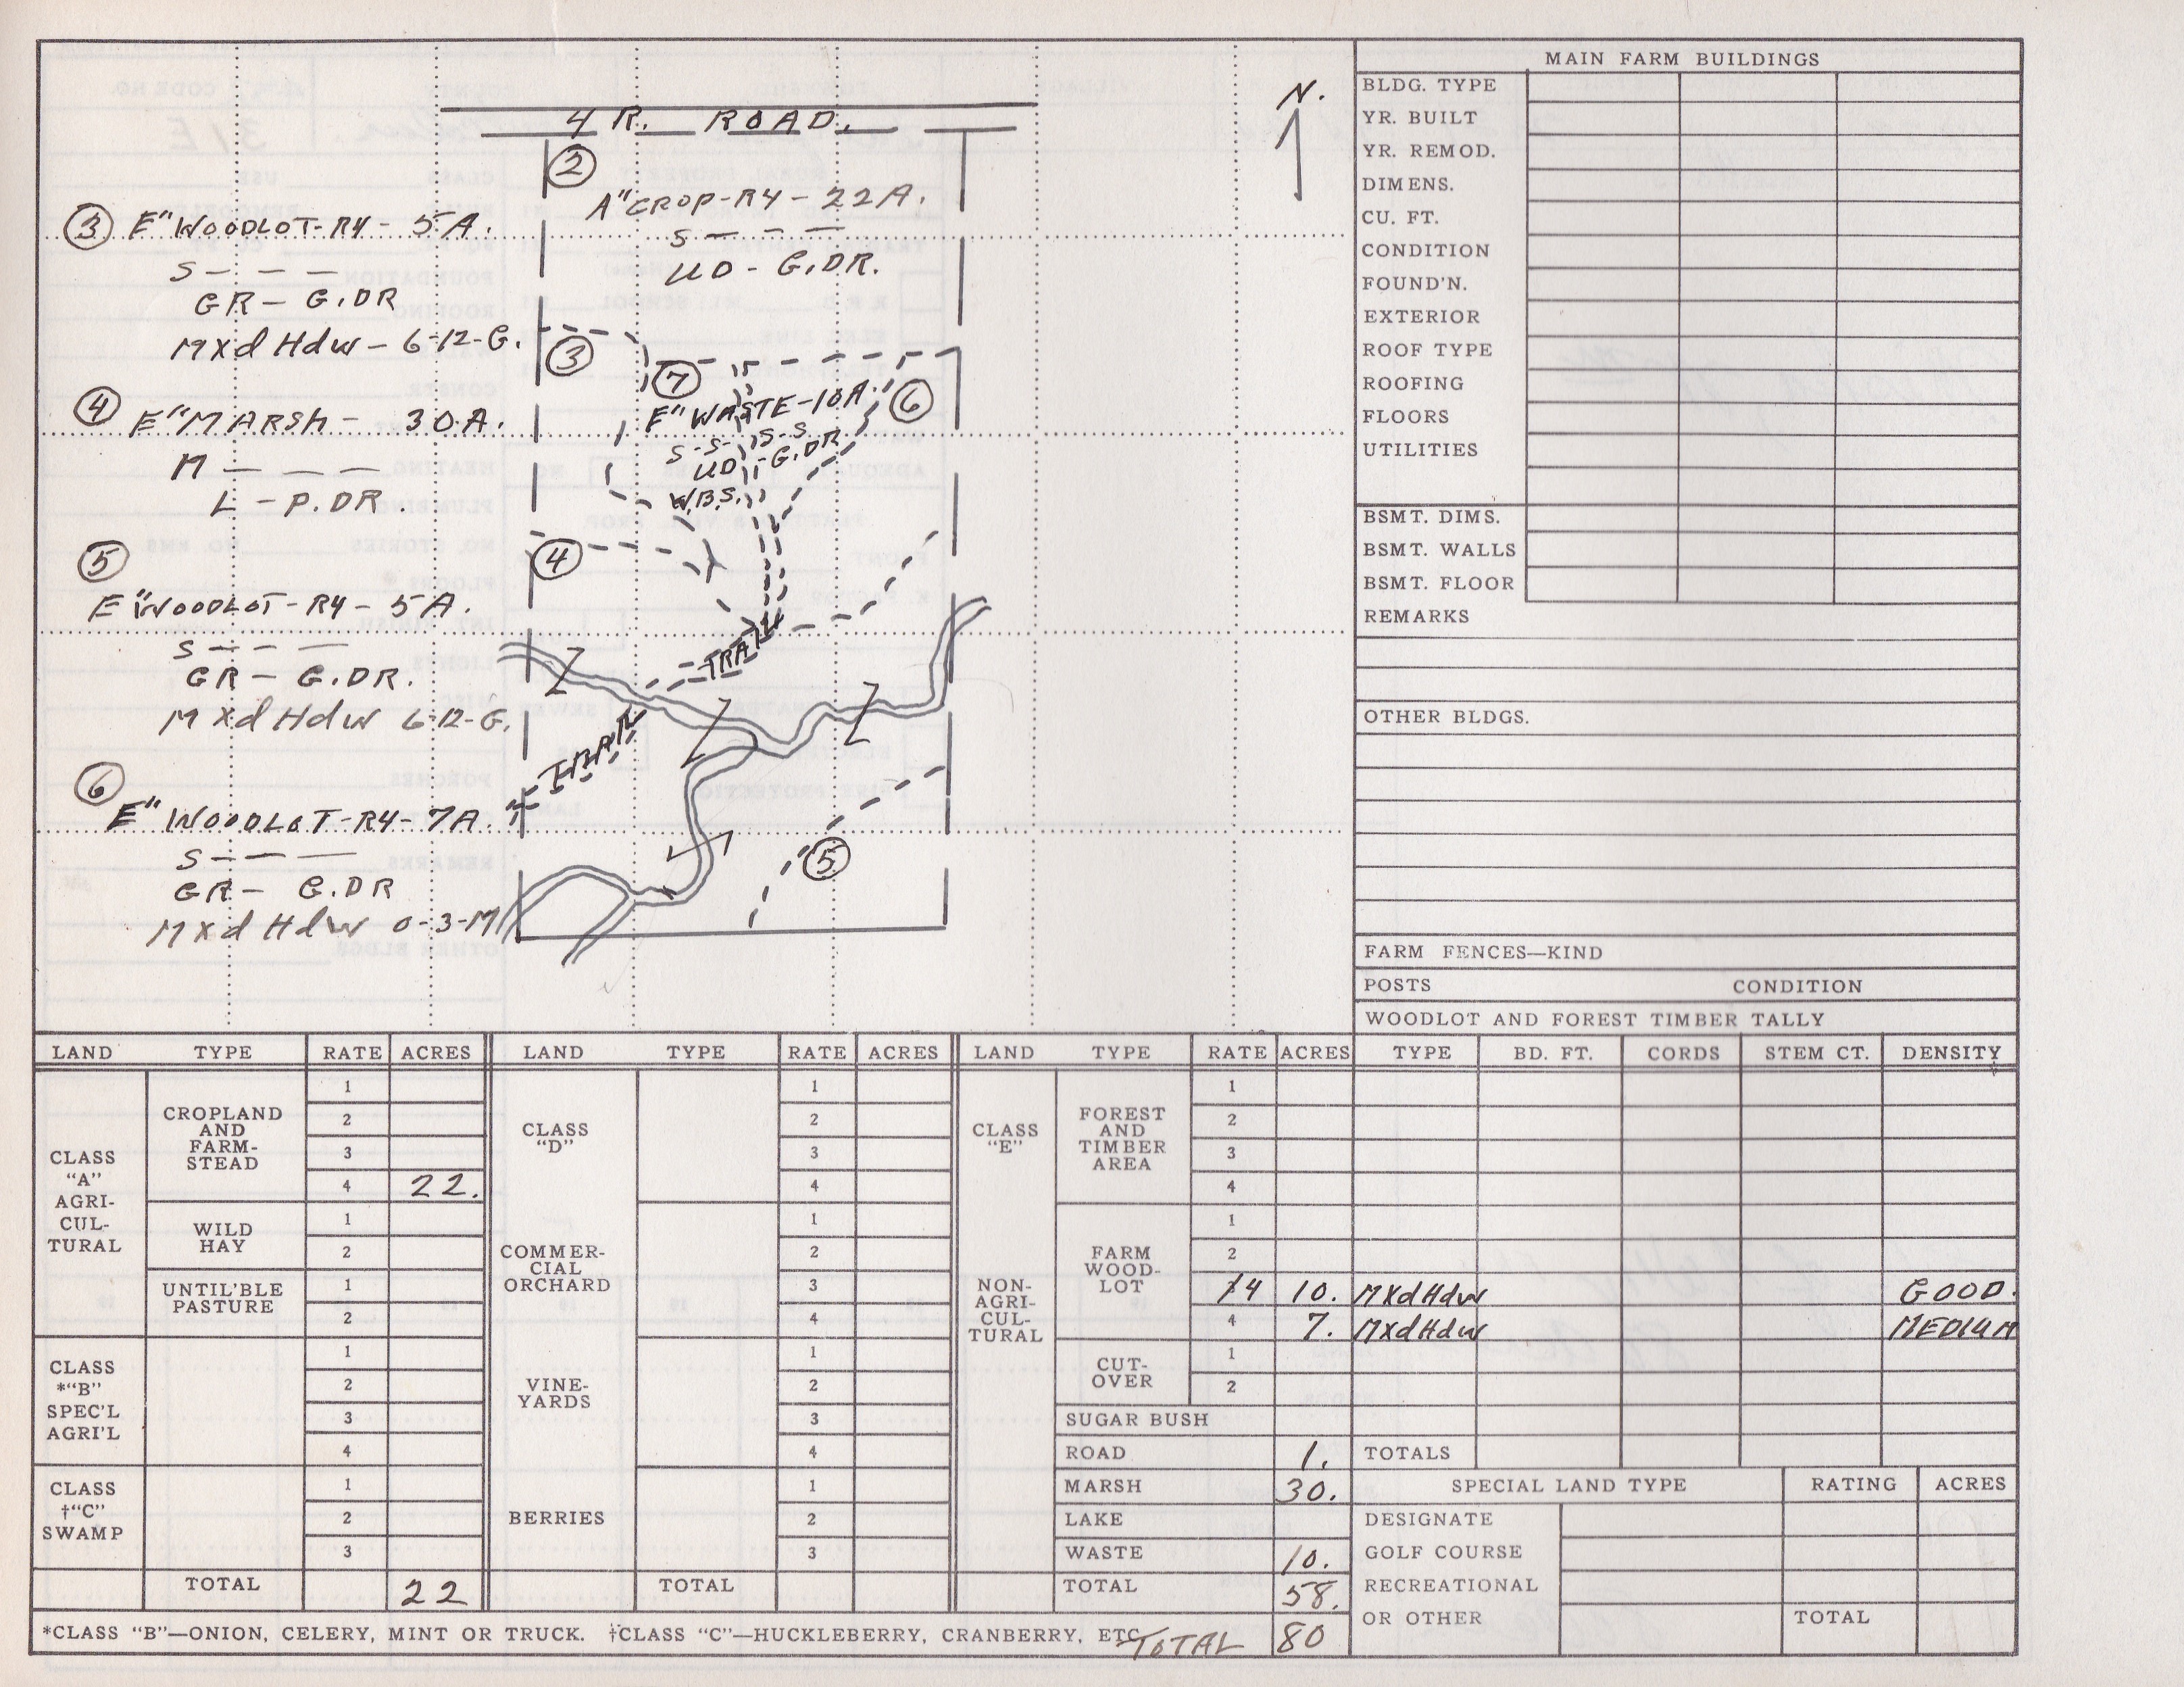 4 R. ROAD.
N.
②
A" CROP-R4-22A.
S - - -
UD - G.DR.
③ E" WOODLOT-R4- 5A.
S - - -
GR - G.DR
Mxd Hdw - 6-12-G.
③
⑦
E" WASTE-10A.
S-S- S-S
UD - G.DR
W.B.S.
⑥
④ E" MARSH - 30A.
M - - -
L - P.DR.
④
⑤
E" WOODLOT-R4-5A.
S - - -
GR - G.DR.
Mxd Hdw 6-12-G.
TRAIL
TRAIL
⑥
E" WOODLOT-R4-7A.
S - - -
GR - G.DR
Mxd Hdw 0-3-M
⑤
MAIN FARM BUILDINGS
BLDG. TYPE
YR. BUILT
YR. REMOD.
DIMENS.
CU. FT.
CONDITION
FOUND'N.
EXTERIOR
ROOF TYPE
ROOFING
FLOORS
UTILITIES
BSMT. DIMS.
BSMT. WALLS
BSMT. FLOOR
REMARKS
OTHER BLDGS.
FARM FENCES—KIND
POSTS CONDITION
WOODLOT AND FOREST TIMBER TALLY
LAND TYPE RATE ACRES LAND TYPE RATE ACRES LAND TYPE RATE ACRES TYPE BD. FT. CORDS STEM CT. DENSITY
CLASS
"A"
AGRI-
CUL-
TURAL
CROPLAND
AND
FARM-
STEAD
1
2
3
4 22.
WILD
HAY
1
2
UNTIL'BLE
PASTURE
1
2
CLASS
*"B"
SPEC'L
AGRI'L
1
2
3
4
CLASS
†"C"
SWAMP
1
2
3
TOTAL 22
CLASS
"D"
1
2
3
4
COMMER-
CIAL
ORCHARD
1
2
3
4
VINE-
YARDS
1
2
3
4
BERRIES
1
2
3
TOTAL
CLASS
"E"
NON-
AGRI-
CUL-
TURAL
FOREST
AND
TIMBER
AREA
1
2
3
4
FARM
WOOD-
LOT
1
2
4 10. Mxd Hdw GOOD.
4 7. Mxd Hdw MEDIUM
CUT-
OVER
1
2
SUGAR BUSH
ROAD 1.
MARSH 30.
LAKE
WASTE 10.
TOTAL 58.
TOTALS
SPECIAL LAND TYPE RATING ACRES
DESIGNATE
GOLF COURSE
RECREATIONAL
OR OTHER TOTAL
*CLASS "B"—ONION, CELERY, MINT OR TRUCK. †CLASS "C"—HUCKLEBERRY, CRANBERRY, ETC. TOTAL 80